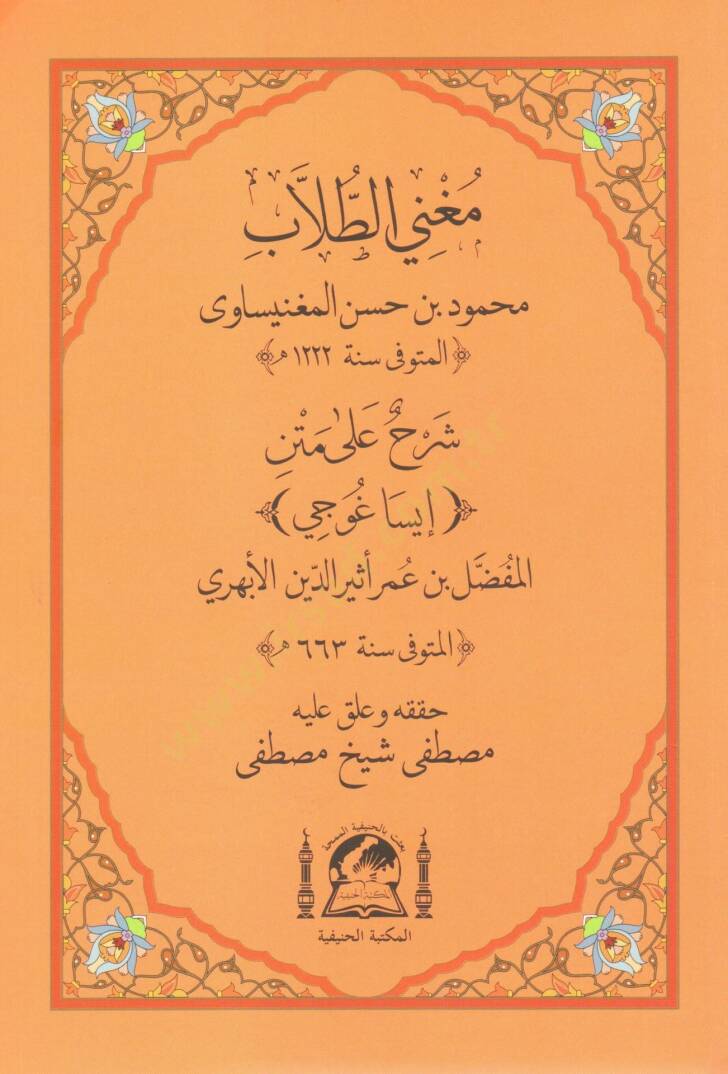 مُغْنِي الطُّلَّابِ
محمود بن حسن المغنيساوى
﴿المتوفى سنة ١٢٢٢ هـ﴾
شَرْحٌ عَلَى مَتْنِ
﴿إِيسَاغُوجِي﴾
المُفَضَّل بن عُمر أثير الدّين الأبهري
﴿المتوفى سنة ٦٦٣ هـ﴾
حققه وعلق عليه
مصطفى شيخ مصطفى
بعثت بالحنيفية السمحة
المكتبة الحنيفية
المكتبة الحنيفية